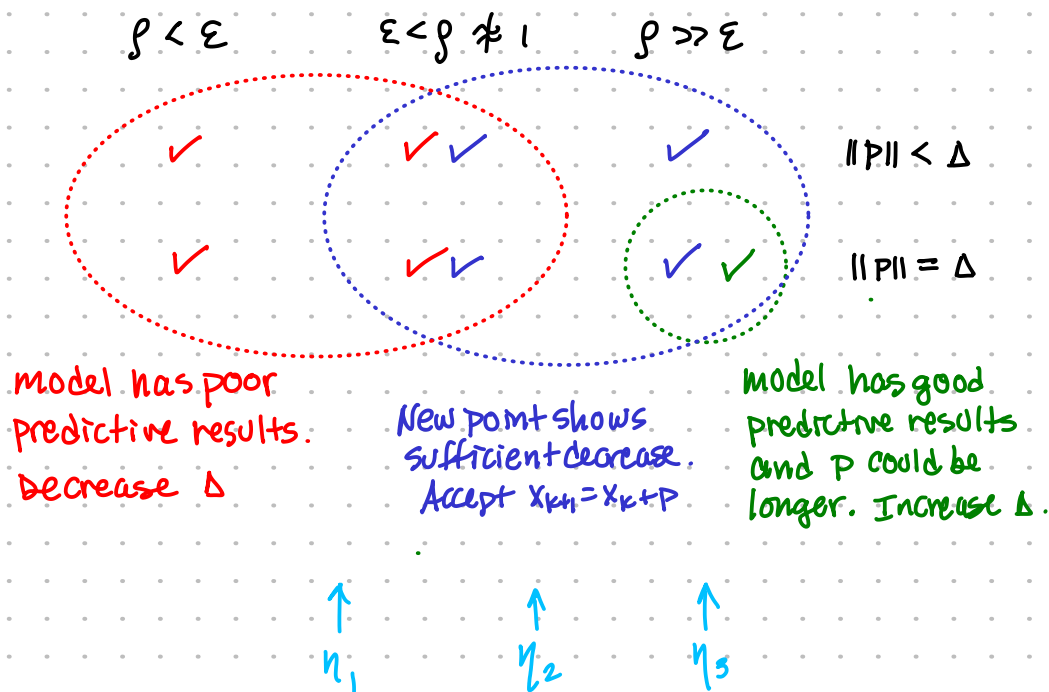 ρ < ε    ε < ρ ≉ 1    ρ >> ε
✓    ✓✓    ✓    ||p|| < Δ
✓    ✓✓    ✓✓    ||p|| = Δ
model has poor
predictive results.
Decrease Δ
New point shows
sufficient decrease.
Accept x_{k+1} = x_k + p
model has good
predictive results
and p could be
longer. Increase Δ.
η_1    η_2    η_3